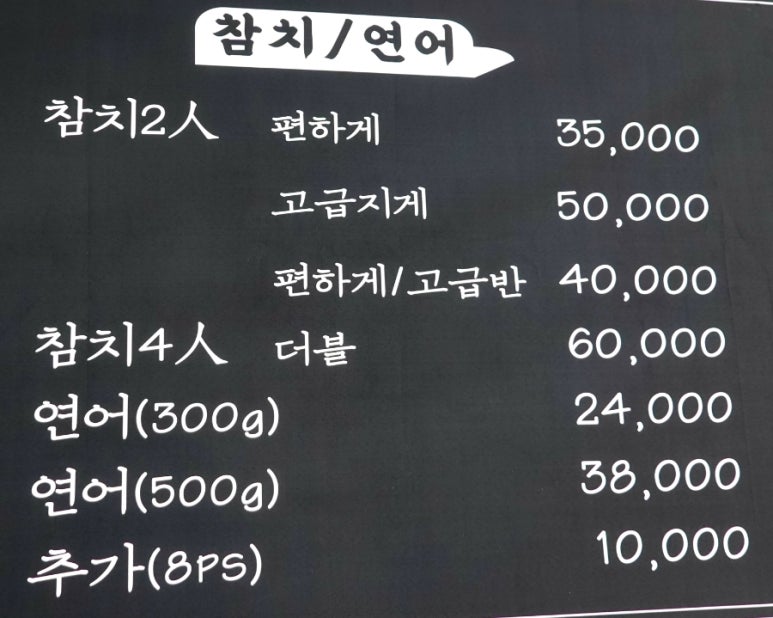 참치/연어
참치2人 편하게 35,000
고급지게 50,000
편하게/고급반 40,000
참치4人 더블 60,000
연어(300g) 24,000
연어(500g) 38,000
추가(8PS) 10,000